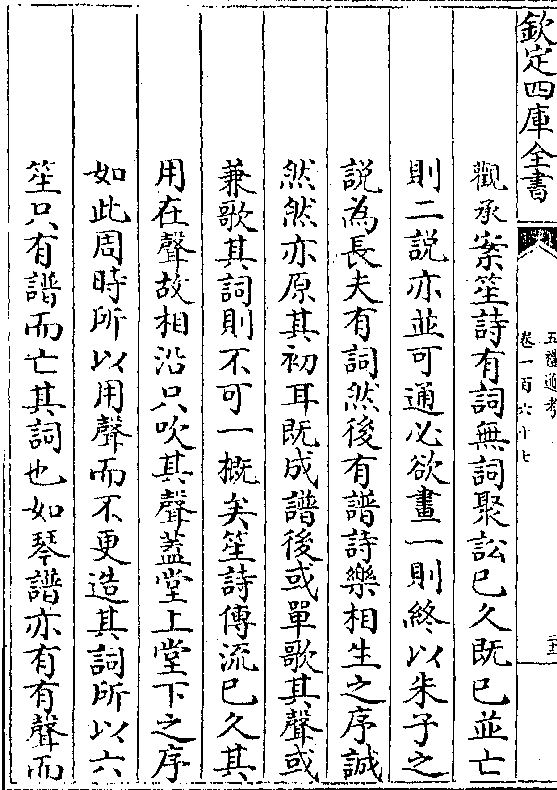 欽定四庫全書
五禮通考
卷一百六十七
觀承案笙詩有詞無詞聚訟已久既已並亡
則二説亦並可通必欲畫一則終以朱子之
説為長夫有詞然後有譜詩樂相生之序誠
然然亦原其初耳既成譜後或單歌其聲或
兼歌其詞則不可一概矣笙詩傳流已久其
用在聲故相沿只吹其聲蓋堂上堂下之序
如此周時所以用聲而不更造其詞所以六
笙只有譜而亡其詞也如琴譜亦有有聲而